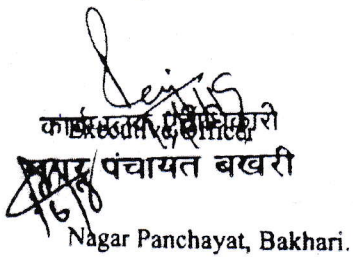 कार्यपालक पदाधिकारी
Executive Officer
नगर पंचायत बखरी
Nagar Panchayat, Bakhari.